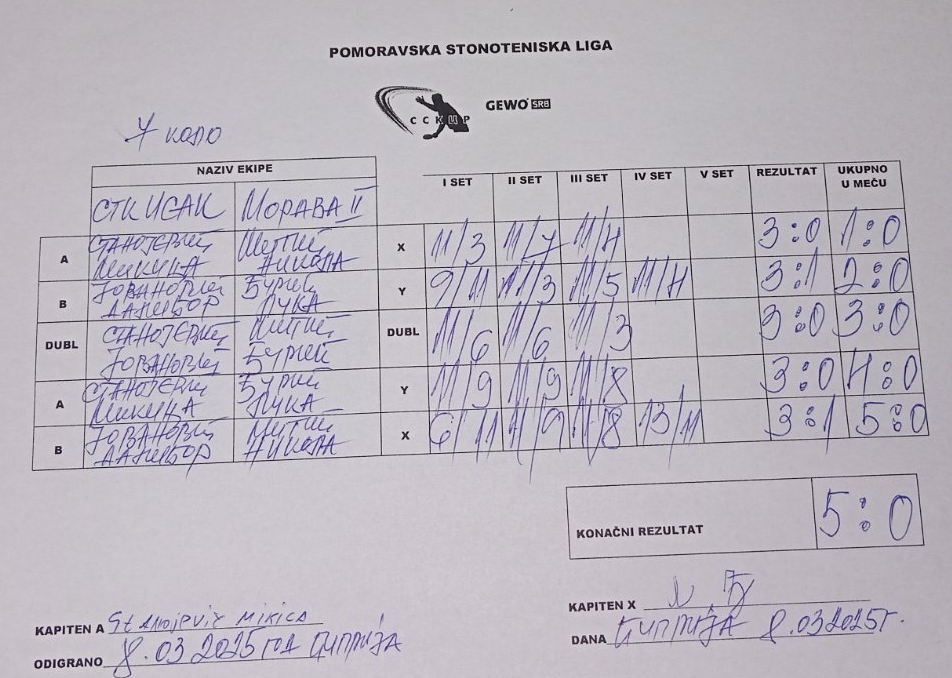 POMORAVSKA STONOTENISKA LIGA
ССКИР GEWO SRB
7 коло
NAZIV EKIPE I SET II SET III SET IV SET V SET REZULTAT UKUPNO U MEČU
СТК ИСАК МОРАВА II
A СТАНОЈЕВИЋ МИКИЦА МИТИЋ НИКОЛА X 11/3 11/7 11/4 3:0 1:0
B ЈОВАНОВИЋ ДАЛИБОР ЂУРИЋ ЛУКА Y 9/11 11/3 11/5 11/4 3:1 2:0
DUBL СТАНОЈЕВИЋ ЈОВАНОВИЋ МИТИЋ ЂУРИЋ DUBL 11/6 11/6 11/3 3:0 3:0
A СТАНОЈЕВИЋ МИКИЦА ЂУРИЋ ЛУКА Y 11/9 11/9 11/8 3:0 4:0
B ЈОВАНОВИЋ ДАЛИБОР МИТИЋ НИКОЛА X 6/11 11/9 11/8 13/11 3:1 5:0
KONAČNI REZULTAT 5:0
KAPITEN A Stanojevic MIKICA
ODIGRANO 8.03 2025 год Ћуприја
KAPITEN X
DANA Ћуприја 8.03 2025г.